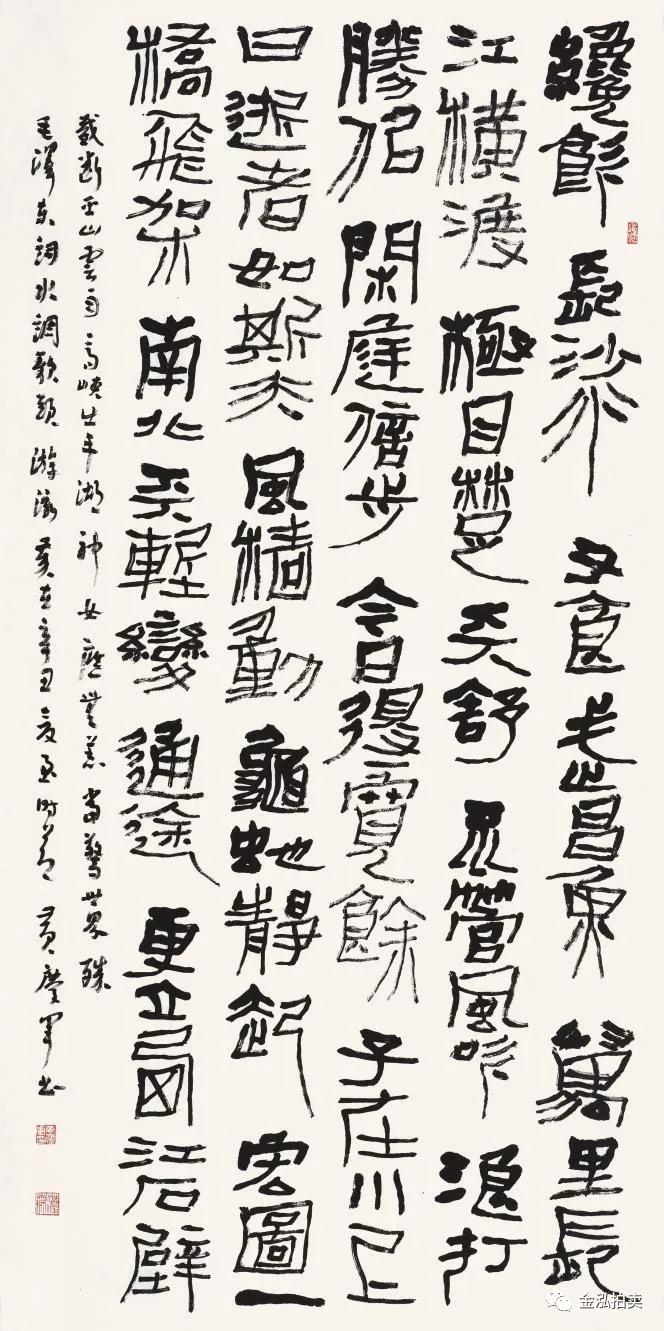 纔飲長沙水又食武昌魚萬里長
江橫渡極目楚天舒不管風吹浪打
勝似閑庭信步今日得寬餘子在川上
曰逝者如斯夫風檣動龜蛇靜起宏圖一
橋飛架南北天塹變通途更立西江石壁
截斷巫山雲雨高峽出平湖神女應無恙當驚世界殊
毛澤東詞水調歌頭游泳歲在辛丑夏至時節黃書
金泓拍卖